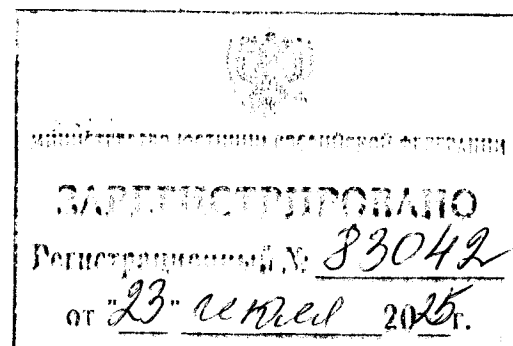 МИНИСТЕРСТВО ЮСТИЦИИ РОССИЙСКОЙ ФЕДЕРАЦИИ
ЗАРЕГИСТРИРОВАНО
Регистрационный № 83042
от "23" июля 2025г.